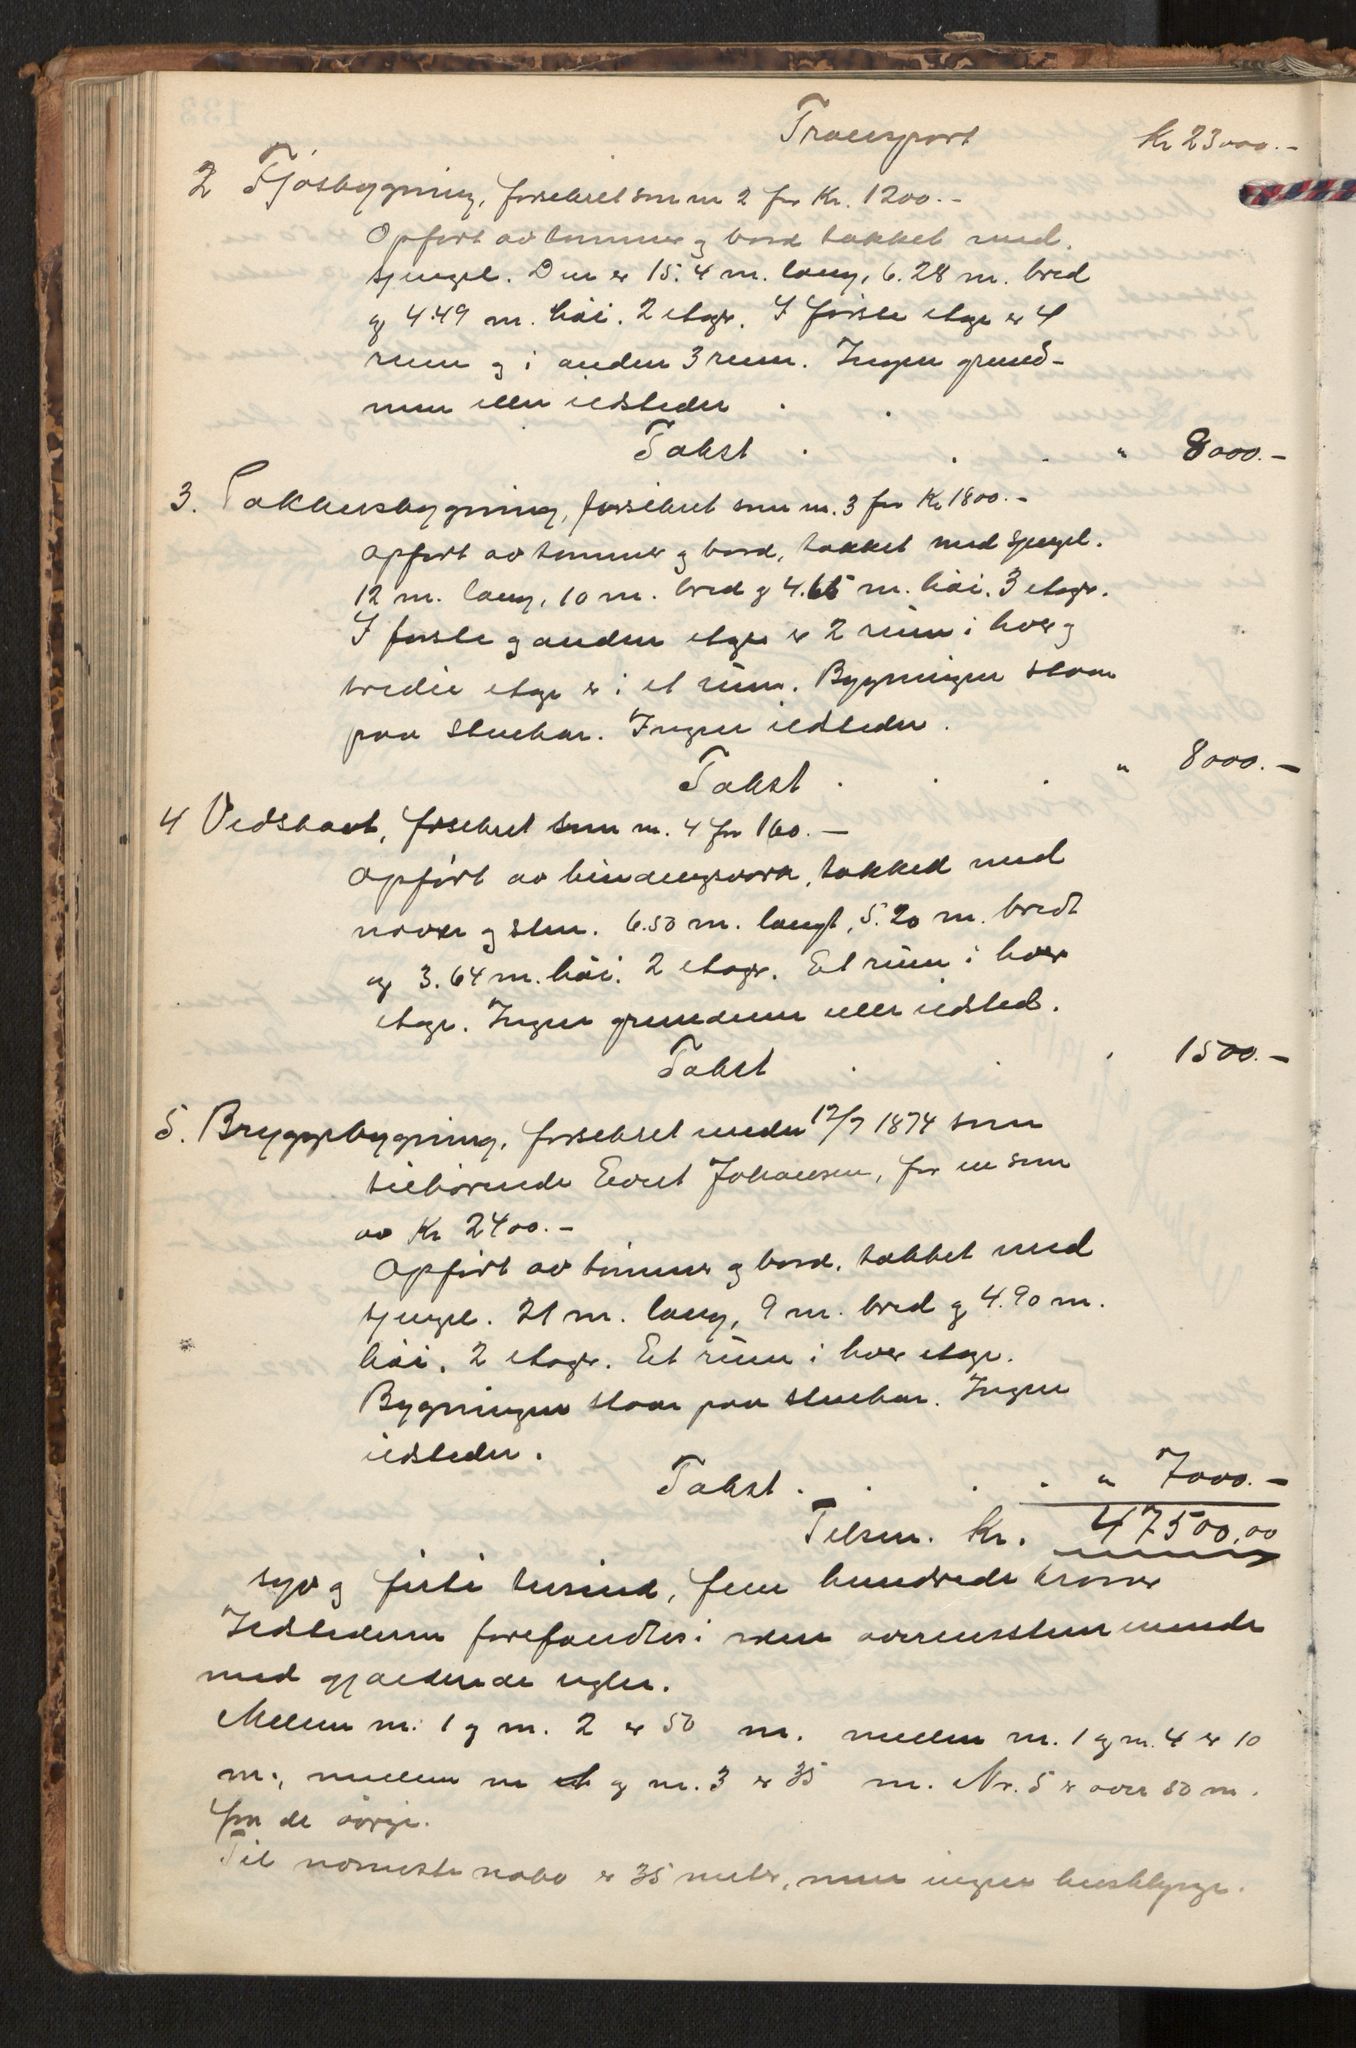 Transport Kr 23000.-
2 Fjøsbygning, forsikret som nr 2 for Kr. 1200.-
Opført av tømmer og bord takket med
spingel. Den er 15.4 m. lang, 6.28 m. bred
og 4.49 m. høi. 2 etager. I første etage er 4
rum og i anden 3 rum. Ingen grund-
mur eller ildsteder
Takst . . . . " 8000.-
3. Pakhusbygning, forsikret som nr. 3 for Kr 1800.-
Opført av tømmer og bord, takket med spingel.
12 m. lang, 10 m. bred og 4.65 m. høi. 3 etager.
I første og anden etage er 2 rum i hver og
tredie etage er i et rum. Bygningen staar
paa stenkar. Ingen ildsteder.
Takst . . . " 8000.-
4 Vedskaat, forsikret som nr. 4 for 160.-
Opført av bindingsverk, takked med
næver og sten. 6.50 m. langt, 5.20 m. bredt
og 3.64 m. høi. 2 etager. Et rum i hver
etage. Ingen grundmur eller ildsted.
Takst . . 1500.-
5. Bryggebygning, forsikret under 12/7 1874 som
tilhørende Evert Johansen, for en sum
av Kr 2400.-
Opført av tømmer og bord, takket med
spingel. 21 m. lang, 9 m. bred og 4.90 m.
høi. 2 etager. Et rum i hver etage.
Bygningen staar paa stenkar. Ingen
ildsteder.
Takst . . . " 7000.-
Tilsm. Kr. 47500.00
syv og firti tusind, fem hundrede kroner
Ildstederne forefandtes i orden overensstemmende
med gjældende regler.
Mellem nr. 1 og nr. 2 er 50 m. mellem nr. 1 og nr. 4 er 10
m., mellem nr og nr. 3 er 35 m. Nr. 5 er over 50 m.
fra de øvrige.
Til nærmeste nabo er 35 meter, men ingen husklynge.